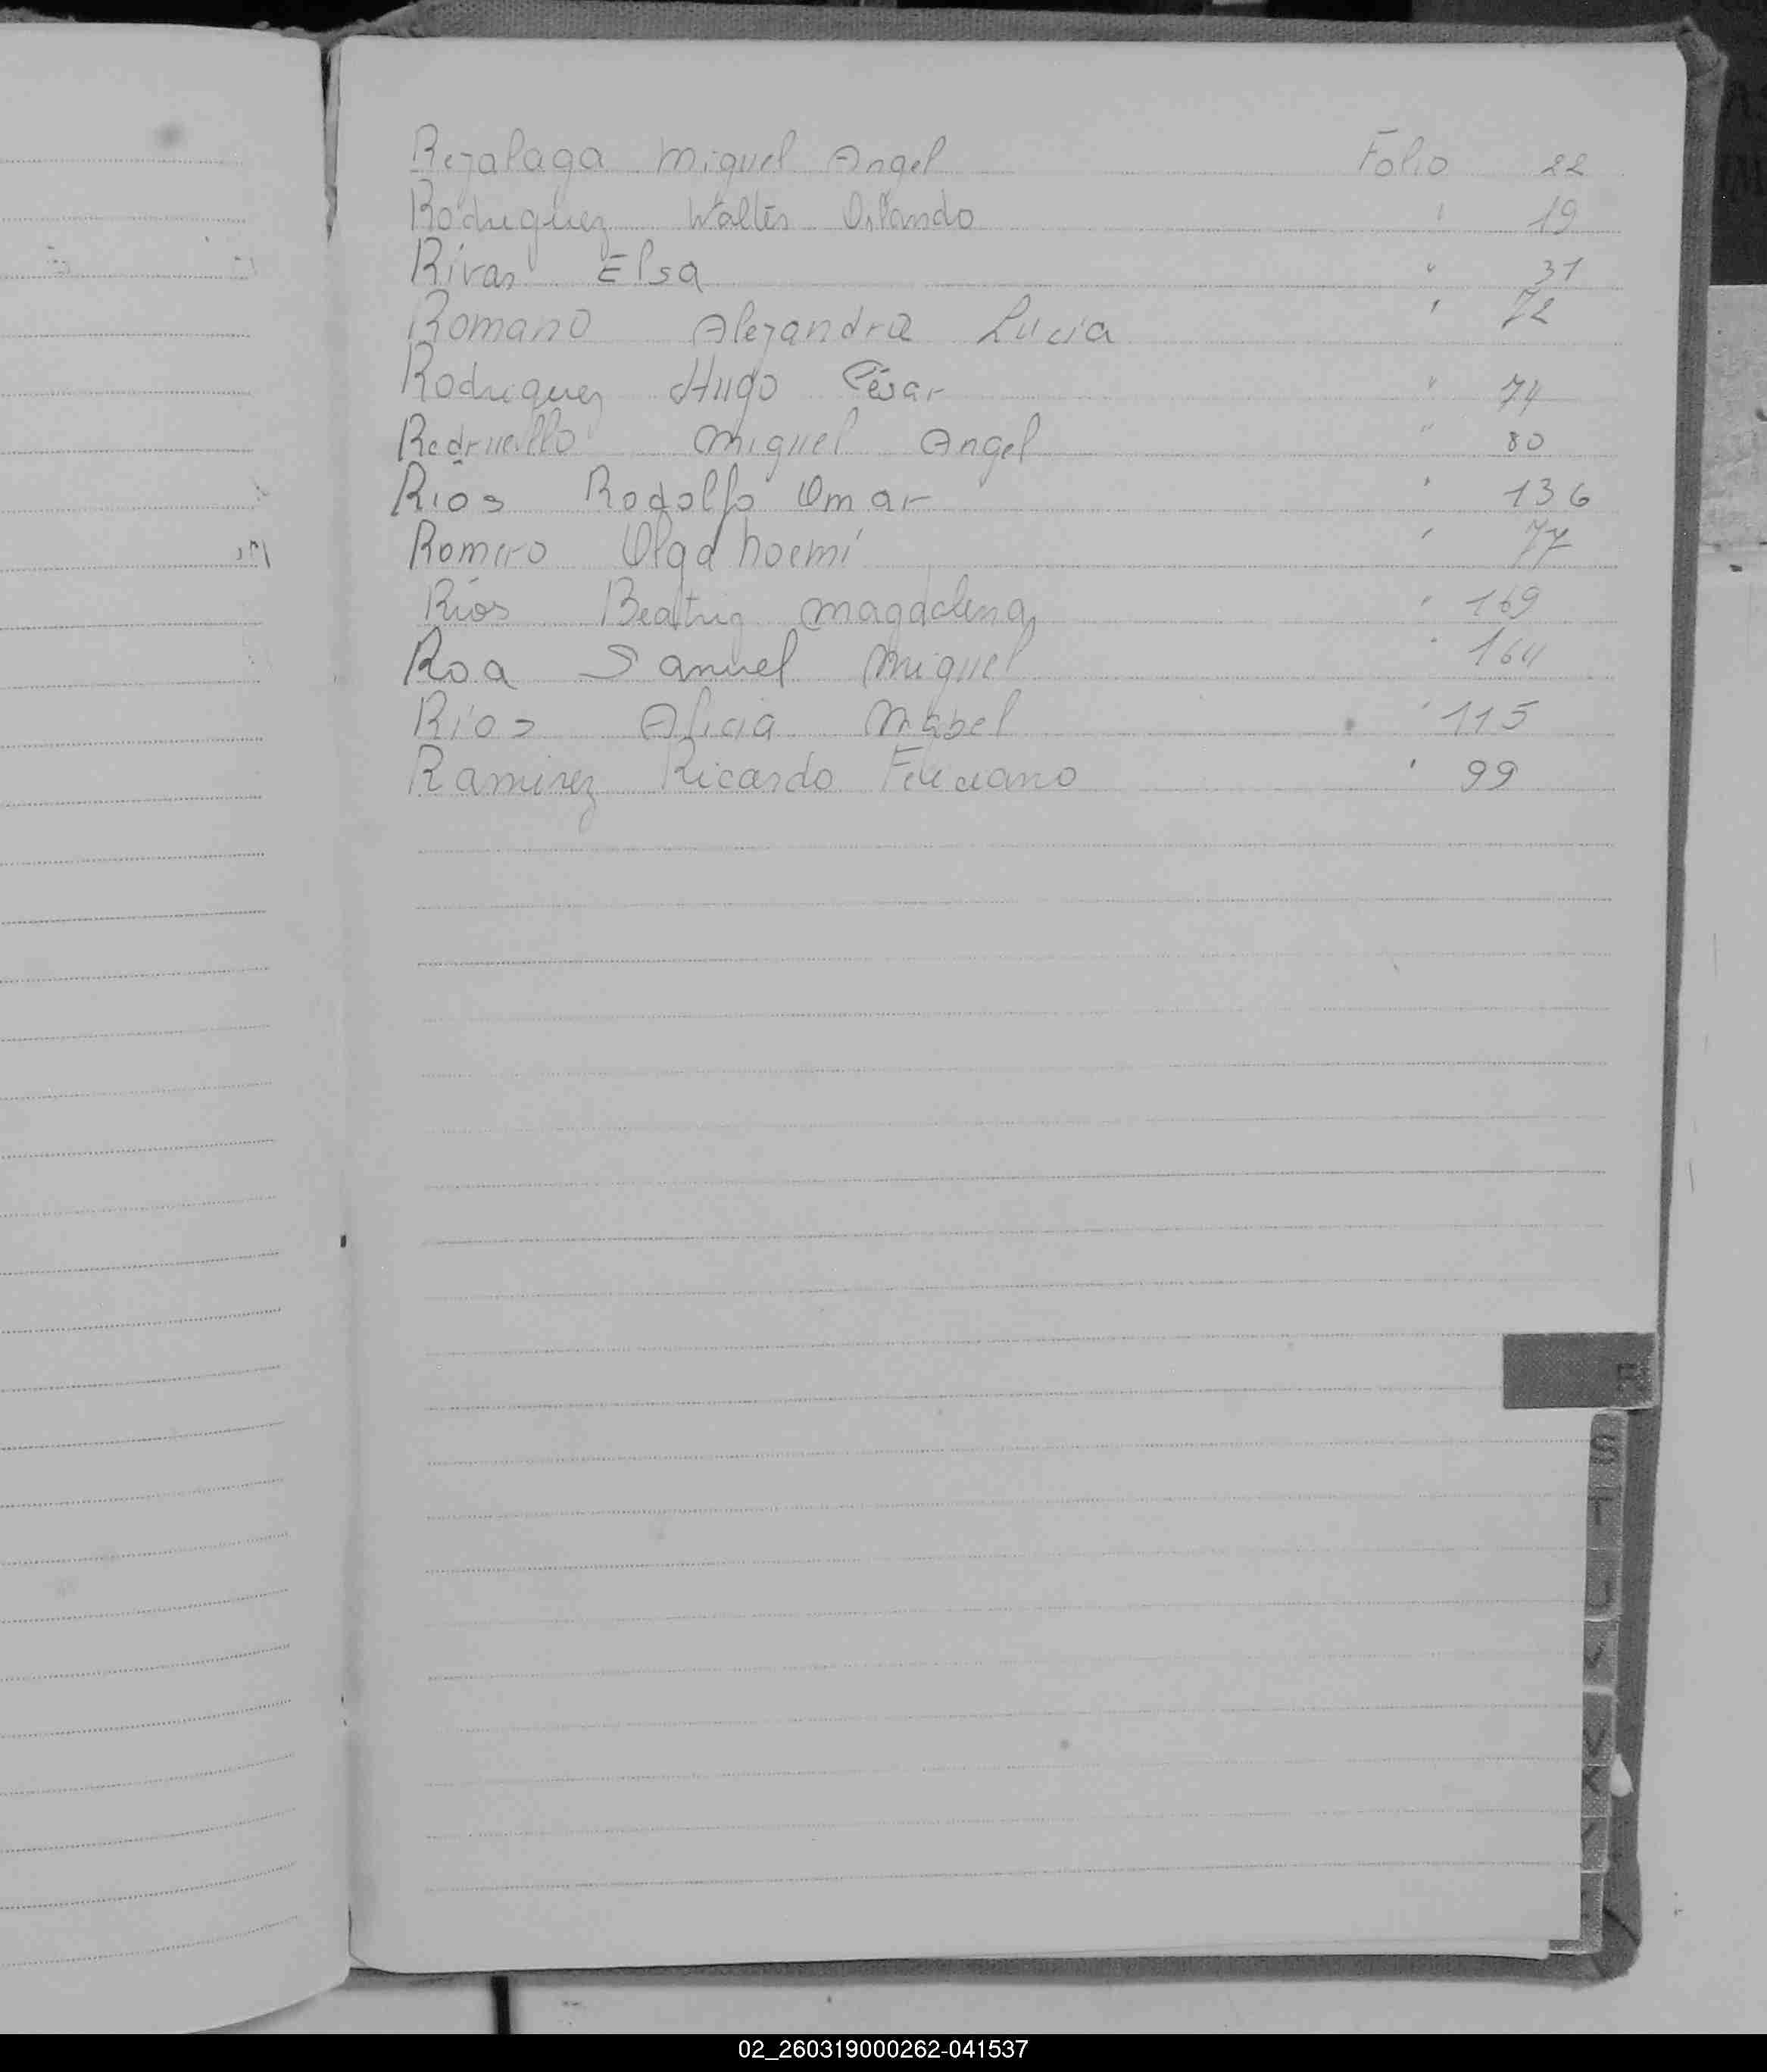 Rezalaga Miguel Angel Folio 22
Rodriguez Walter Orlando " 19
Rivas Elsa " 31
Romano Alejandra Lucia " 72
Rodriguez Hugo César " 74
Redruello Miguel Angel " 80
Rios Rodolfo Omar " 136
Romero Olga Noemí " 77
Rios Beatriz Magdalena " 169
Roa Samuel Miguel " 164
Ríos Alicia Mabel " 115
Ramirez Ricardo Feliciano " 99
R
S
T
U
V
X
Y
02_260319000262-041537